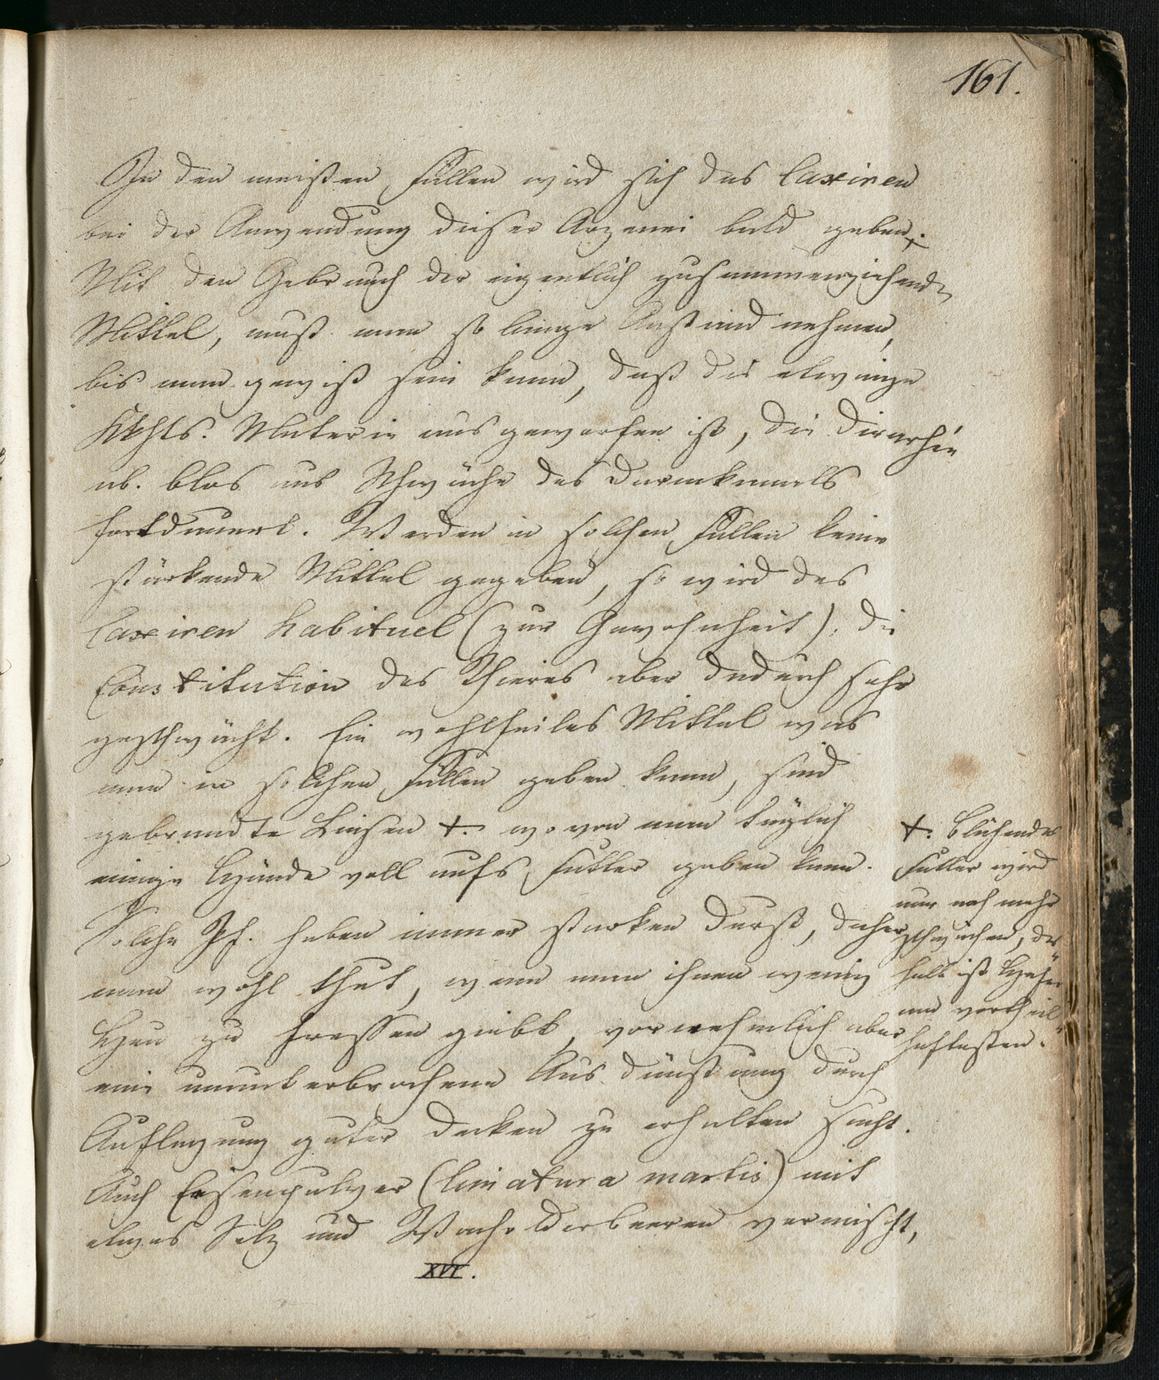 161.
In den meisten Fällen wird sich das Laxiren
bei der Anwendung dieser Arzenei bald geben;
Mit den Gebrauch der eigentlich zusammenziehenden
Mittel, muß man so lange Anstand nehmen,
bis man gewiß sein kann, daß die etwanige
Materie ausgeworfen ist, die Diarrhée
ab. blos aus Schwäche des Darmkanals
fortdauert. Werden in solchen Fällen keine
stärkende Mittel gegeben, so wird das
Laxiren habituel (zur Gewohnheit), die
Constitution des Thieres aber dadurch sehr
geschwächt. Ein wohlfeiles Mittel was
man in solchen Fällen geben kann, sind
gebrandte Linsen +. wovon man täglich
einige Hände voll aufs Futter geben kann.
Solche Pf. haben immer starken Durst, daher
man wohl thut, wenn man ihnen wenig
Heu zu fressen giebt, vornehmlich aber
eine ununterbrochene Ausdünstung durch
Auflegung guter Decken zu erhalten sucht.
Auch Eisenpulver (limatura martis) mit
etwas Salz und Wachholderbeeren vermischt,
XVI.
+. Blähendes
Futter wird
nur noch mehr
schwächen, des
halb ist
am vortheil
haftesten.